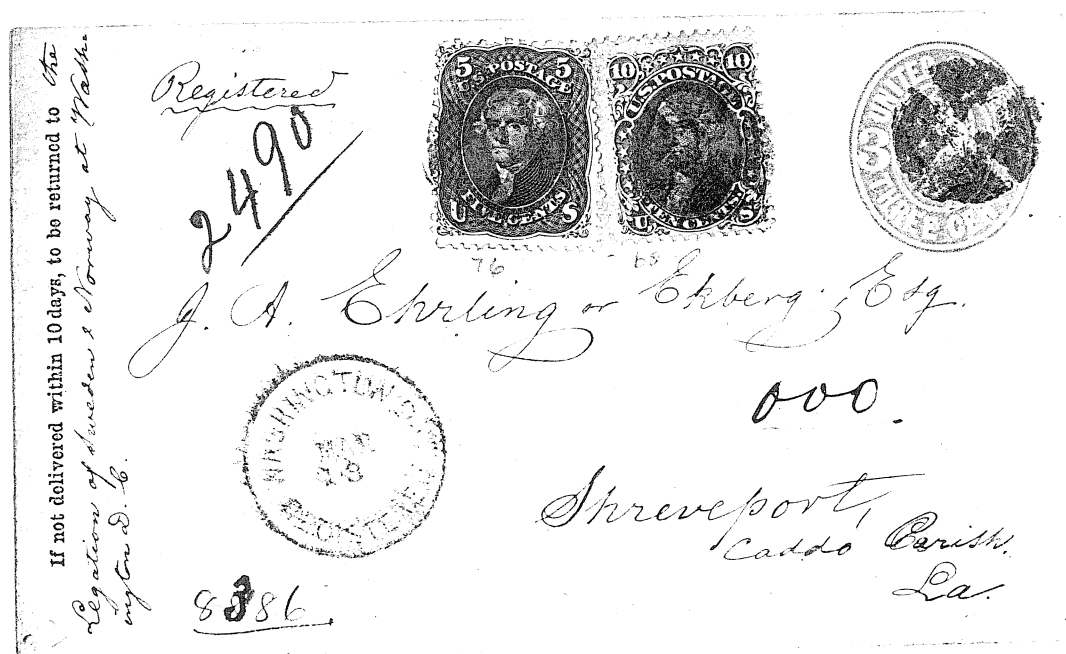 If not delivered within 10 days, to be returned to the
Legation of Sweden & Norway at Wash-
ington D. C.
Registered
2490
5 5
U.S. POSTAGE
FIVE CENTS
U S
10 10
U.S. POSTAGE
TEN CENTS
U S
UNITED
3 3
THREE CENTS
76
68
J. A. Ehrling or Ekberg, Esq.
000.
WASHINGTON D.C.
MAR
28
REGISTERED
Shreveport,
Caddo Parish.
La.
8386.